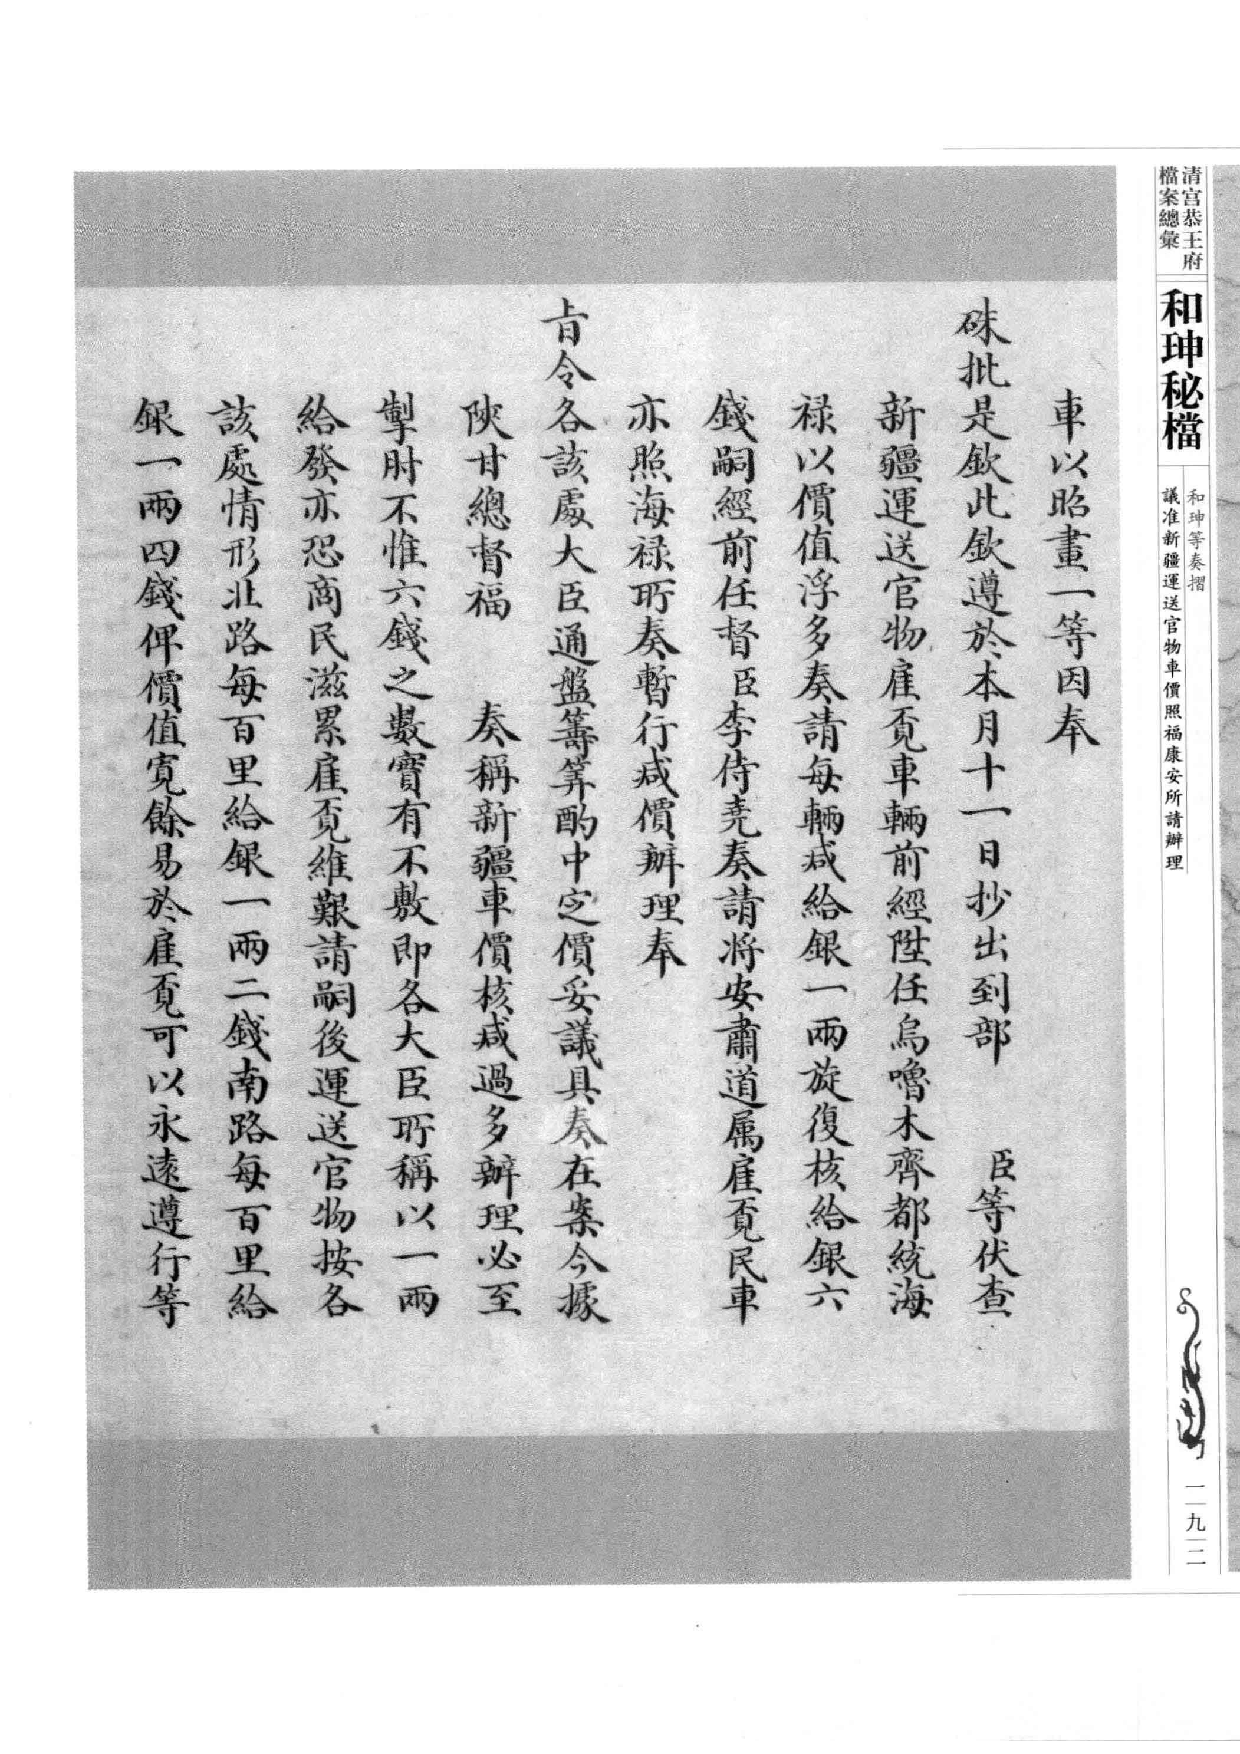 清宫恭王府
檔案總彙
和珅秘檔
和珅等奏摺
議准新疆運送官物車價照福康安所請辦理
一九二
車以昭畫一等因奉
硃批是欽此欽遵於本月十一日抄出到部　臣等伏查
新疆運送官物雇覔車輛前經陞任烏嚕木齊都統海
禄以價值浮多奏請每輛减給銀一兩旋復核給銀六
錢嗣經前任督臣李侍堯奏請将安肅道属雇覔民車
亦照海禄所奏暫行减價辦理奉
旨令各該處大臣通盤籌筭酌中定價妥議具奏在案今據
陝甘總督福　奏稱新疆車價核减過多辦理必至
掣肘不惟六錢之數實有不敷即各大臣所稱以一兩
給發亦恐商民滋累雇覔維艱請嗣後運送官物按各
該處情形北路每百里給銀一兩二錢南路每百里給
銀一兩四錢俾價值寬餘易於雇覔可以永遠遵行等